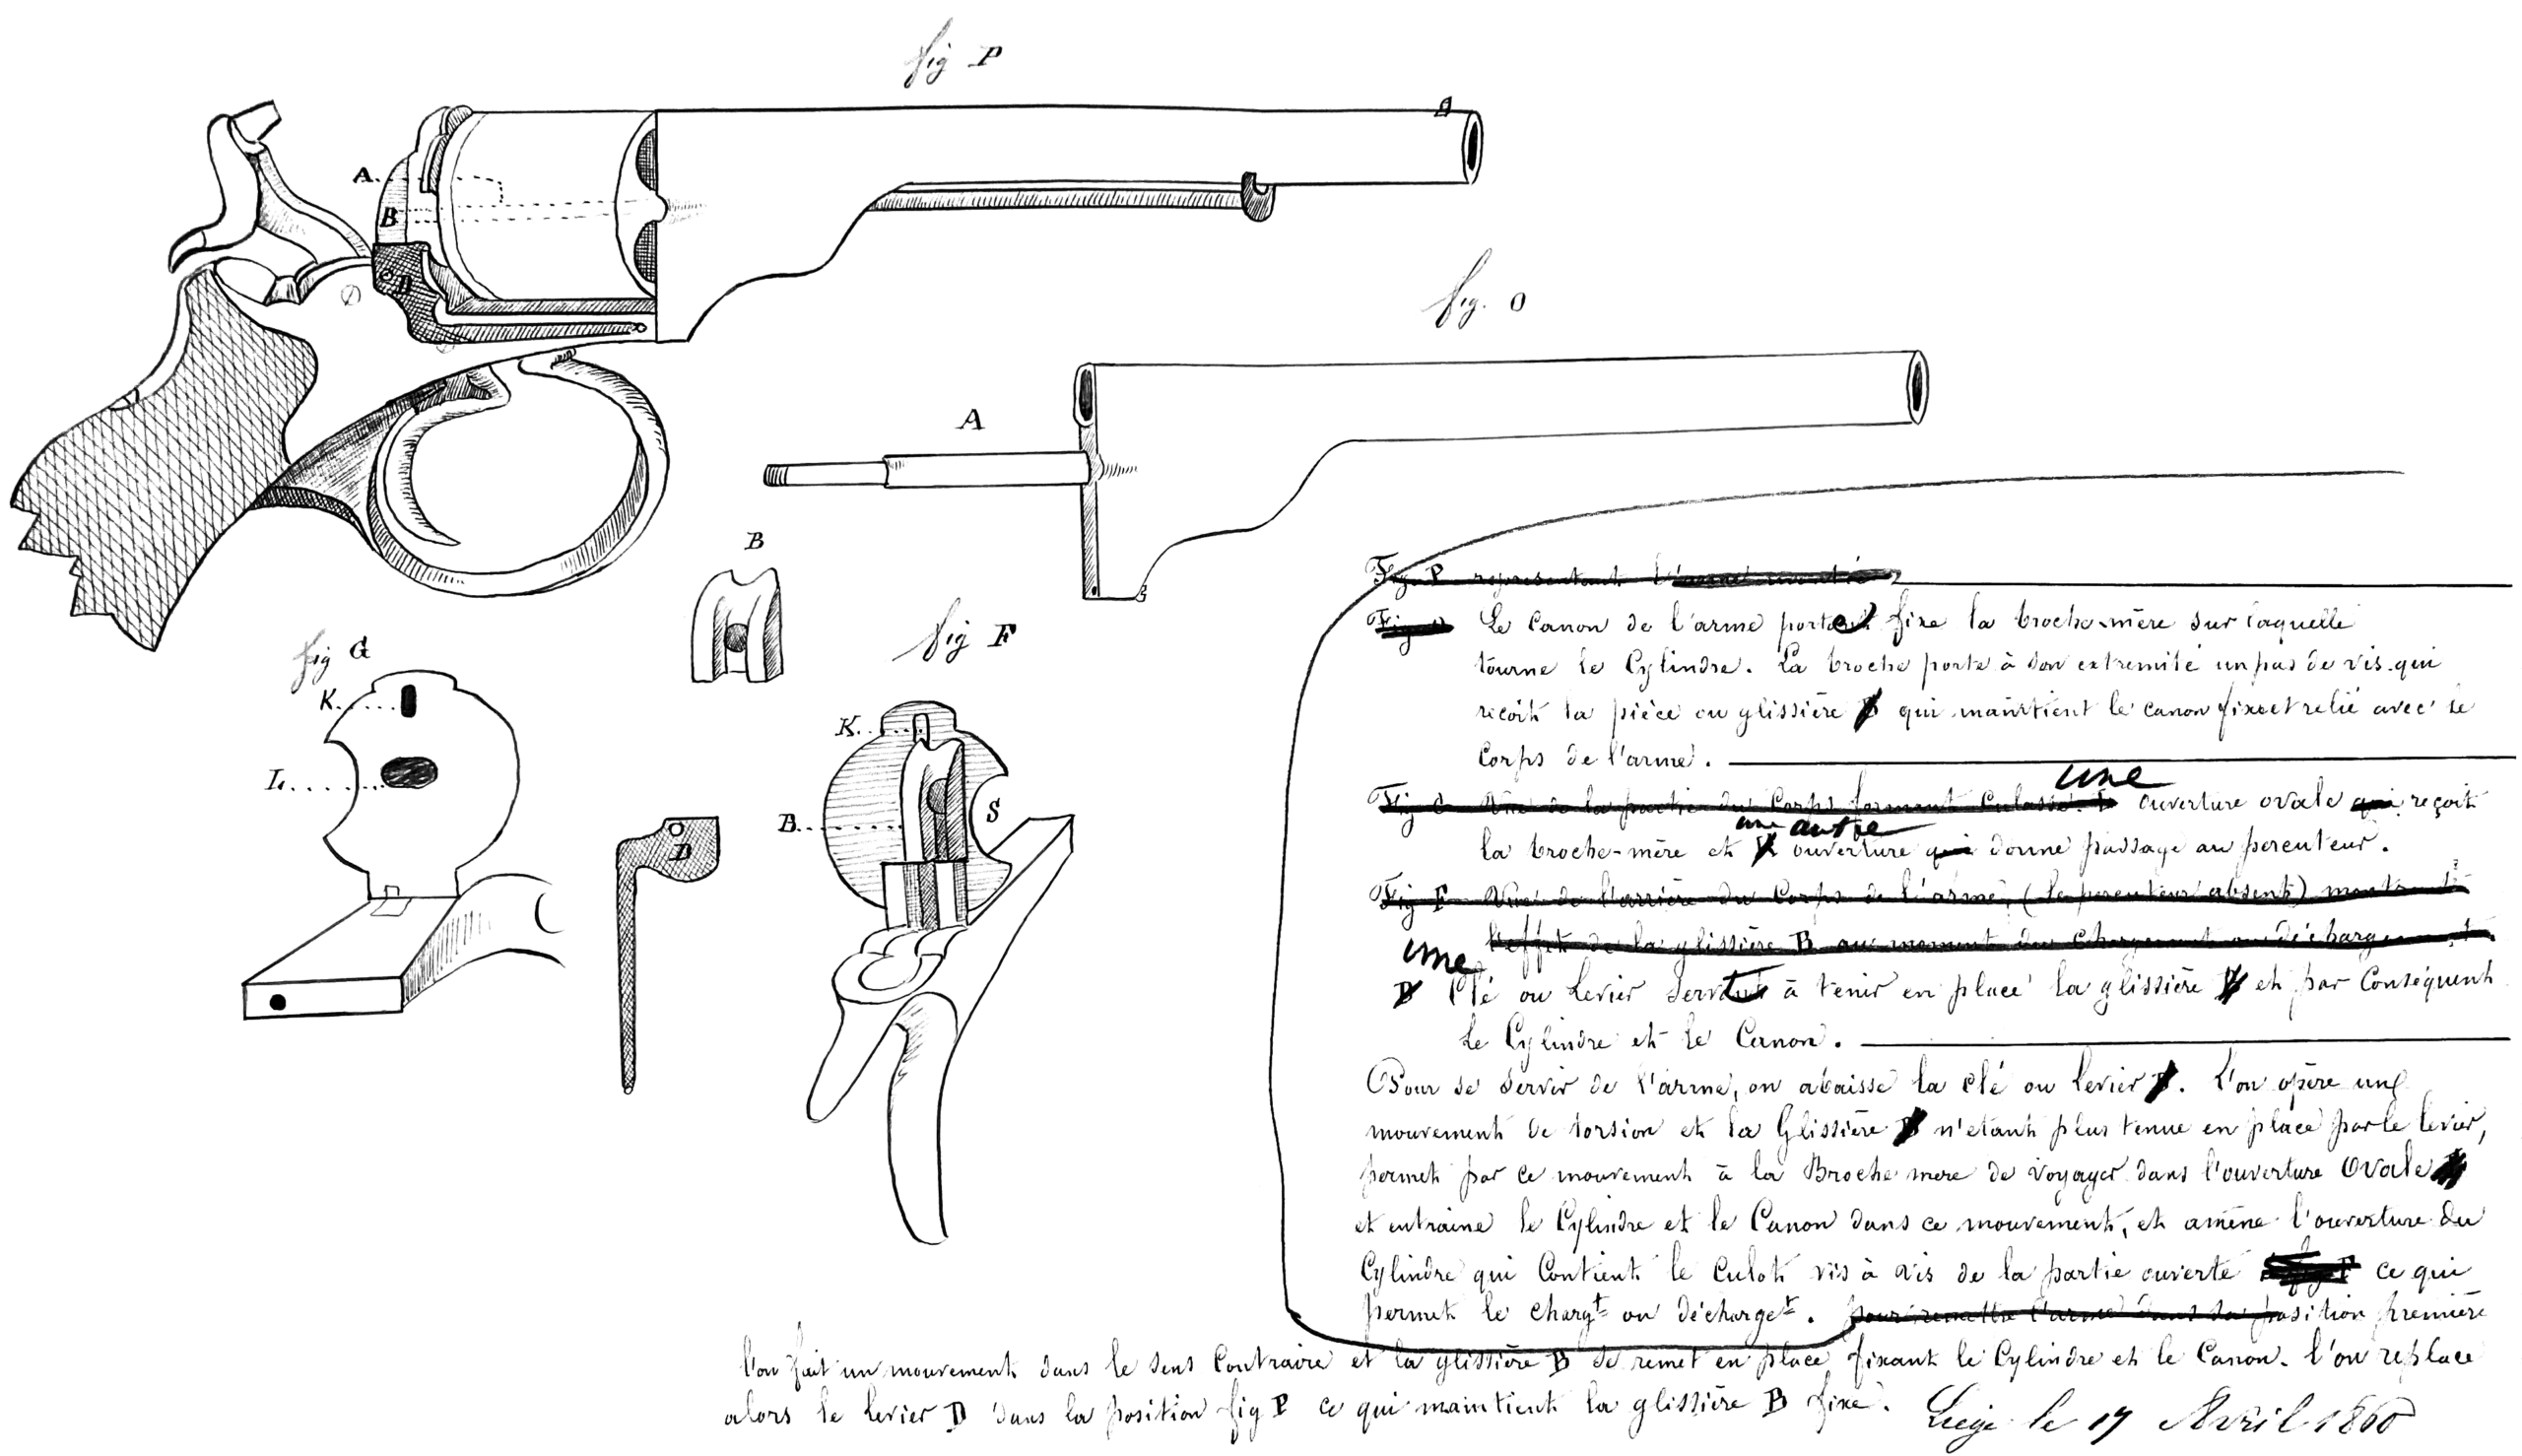 fig P
A
B
D
Fig. O
A
B
fig G
K
L
D
fig F
K
B
S
Fig. P representant l'arme
Fig O Le Canon de l'arme porte fixe la broche-mère sur laquelle
tourne le Cylindre. La broche porte à son extremité un pas de vis qui
reçoit la pièce ou glissière B qui maintient le canon fixe et relié avec le
Corps de l'arme.
une
Fig G Vue de la partie du Corps formant Culasse. L ouverture ovale qui reçoit
une autre
la broche-mère et K ouverture qui donne passage au percuteur.
Fig F Vue de l'arrière du Corps de l'arme, (le percuteur absent) montrant
l'effet de la glissière B au moment du chargement ou déchargement.
une
D Clé ou Levier servant à tenir en place la glissière B et par Conséquent
Le Cylindre et le Canon.
Pour se servir de l'arme, on abaisse la clé ou levier D. L'on opère un
mouvement de torsion et la Glissière B n'etant plus tenue en place par le levier,
permet par ce mouvement à la Broche mere de voyager dans l'ouverture Ovale
et entraine le Cylindre et le Canon dans ce mouvement, et amène l'ouverture du
Cylindre qui Contient le Culot vis à vis de la partie ouverte ce qui
permet le charg.t ou décharge.t. pour remettre l'arme dans sa position première
l'on fait un mouvement dans le sens Contraire et la glissière B se remet en place fixant le Cylindre et le Canon. l'on replace
alors le Levier D dans la position fig P ce qui maintient la glissière B fixe.
Liège le 17 Avril 1860